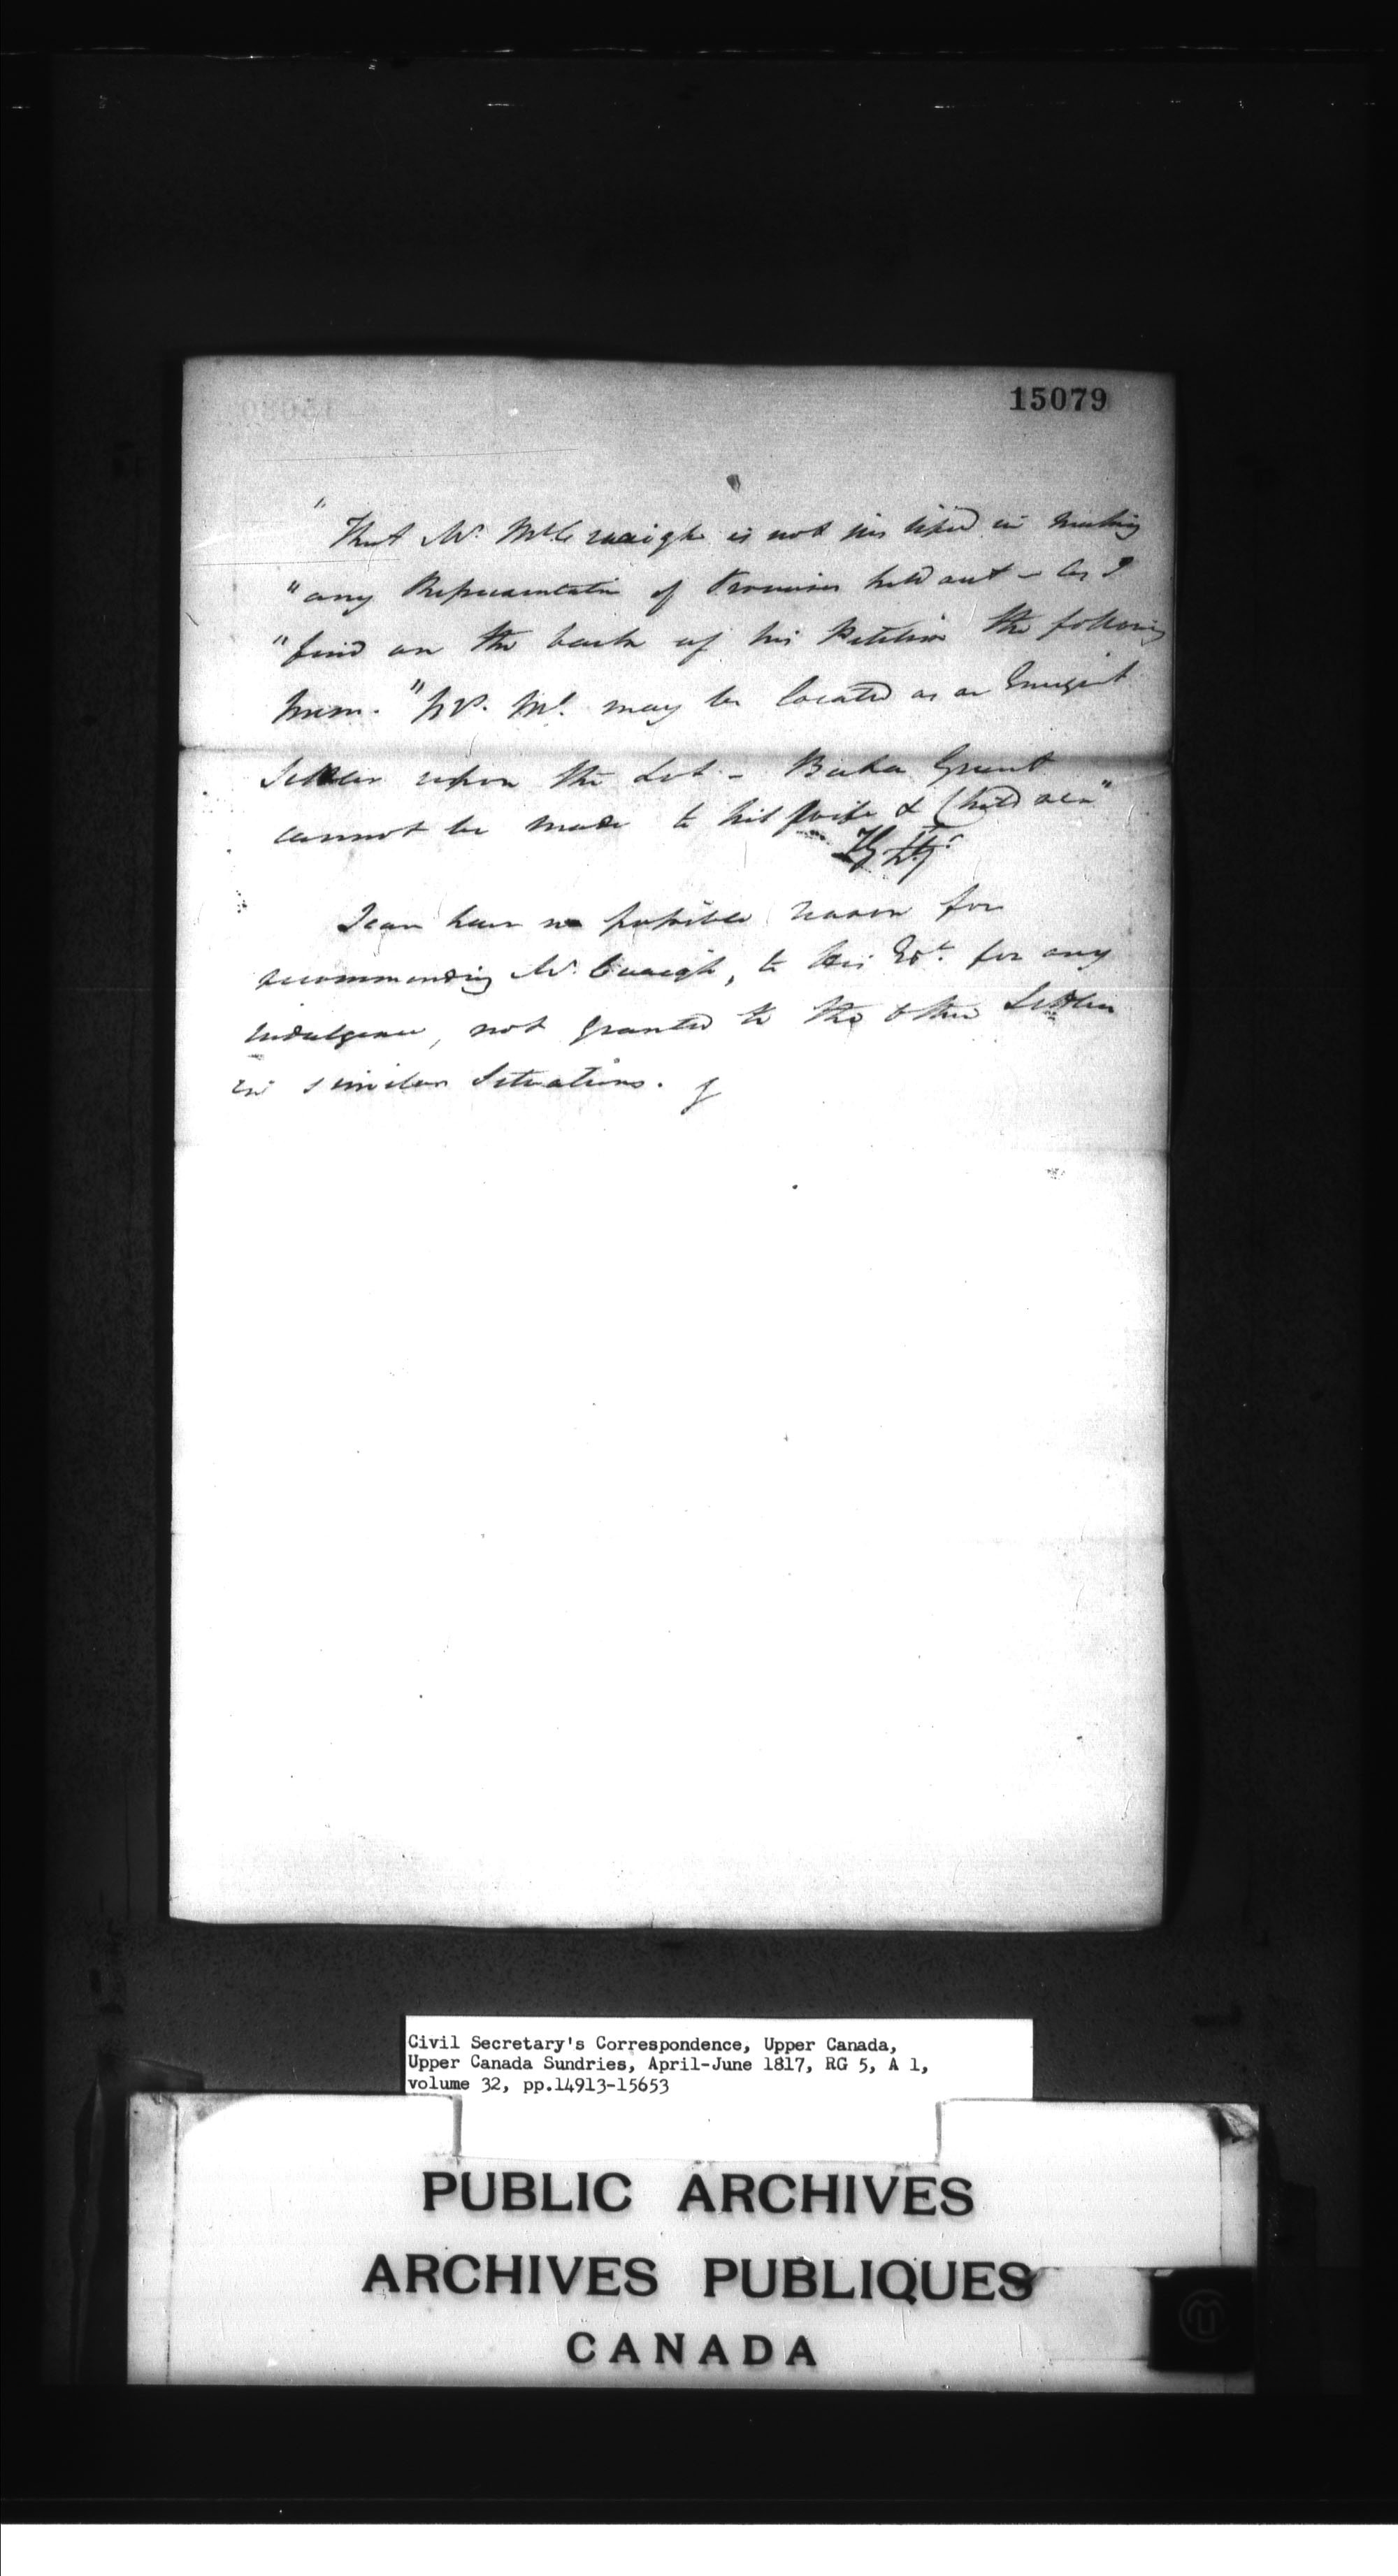 15079
"That Mr. McCraaigh is not justified in making
"any Representation of Promises held out – as I
"find on the back of his Petition the following
Mem. " Mc. may be located as an Emigrant
Settler upon the Lot – But a Grant
cannot be made to his Wife & Children"
I can have no possible reason for
recommending Mr. Craaigh, to his Ex. for any
indulgence, not granted to the other Settlers
in similar Situations.
Civil Secretary's Correspondence, Upper Canada,
Upper Canada Sundries, April-June 1817, RG 5, A 1,
volume 32, pp.14913-15653
PUBLIC ARCHIVES
ARCHIVES PUBLIQUES
CANADA